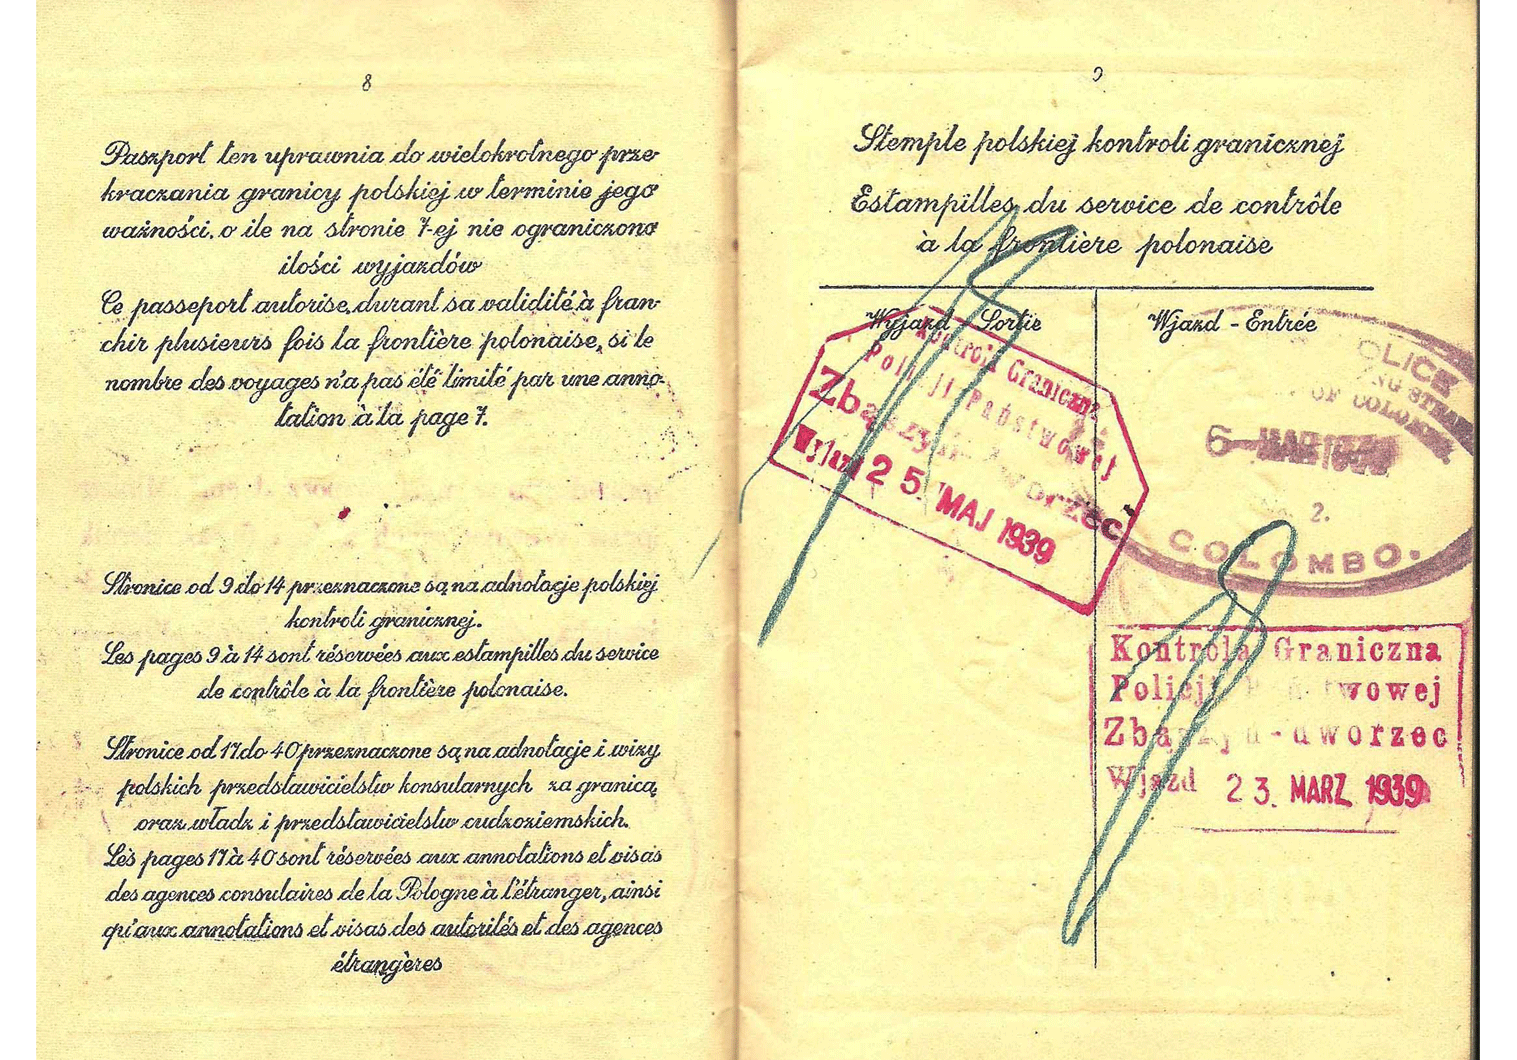 8
Paszport ten uprawnia do wielokrotnego prze-
kraczania granicy polskiej w terminie jego
ważności, o ile na stronie 7-ej nie ograniczono
ilości wyjazdów
Ce passeport autorise, durant sa validité, à fran-
chir plusieurs fois la frontière polonaise, si le
nombre des voyages n'a pas été limité par une anno-
tation à la page 7.
Stronice od 9 do 14 przeznaczone są na adnotacje polskiej
kontroli granicznej.
Les pages 9 à 14 sont réservées aux estampilles du service
de contrôle à la frontière polonaise.
Stronice od 17 do 40 przeznaczone są na adnotacje i wizy
polskich przedstawicielstw konsularnych za granicą,
oraz władz i przedstawicielstw cudzoziemskich.
Les pages 17 à 40 sont réservées aux annotations et visas
des agences consulaires de la Pologne à l'étranger, ainsi
qu'aux annotations et visas des autorités et des agences
étrangères
9
Stemple polskiej kontroli granicznej
Estampilles du service de contrôle
à la frontière polonaise
Wyjazd - Sortie
Kontrola Graniczna
Policji Państwowej
Zbąszyń-dworzec
Wyjazd 25 MAJ 1939
Wjazd - Entrée
OLICE
OF COLOMBO.
6 - MAR
2.
COLOMBO.
Kontrola Graniczna
Policji Państwowej
Zbąszyń-dworzec
Wjazd 23. MARZ 1939